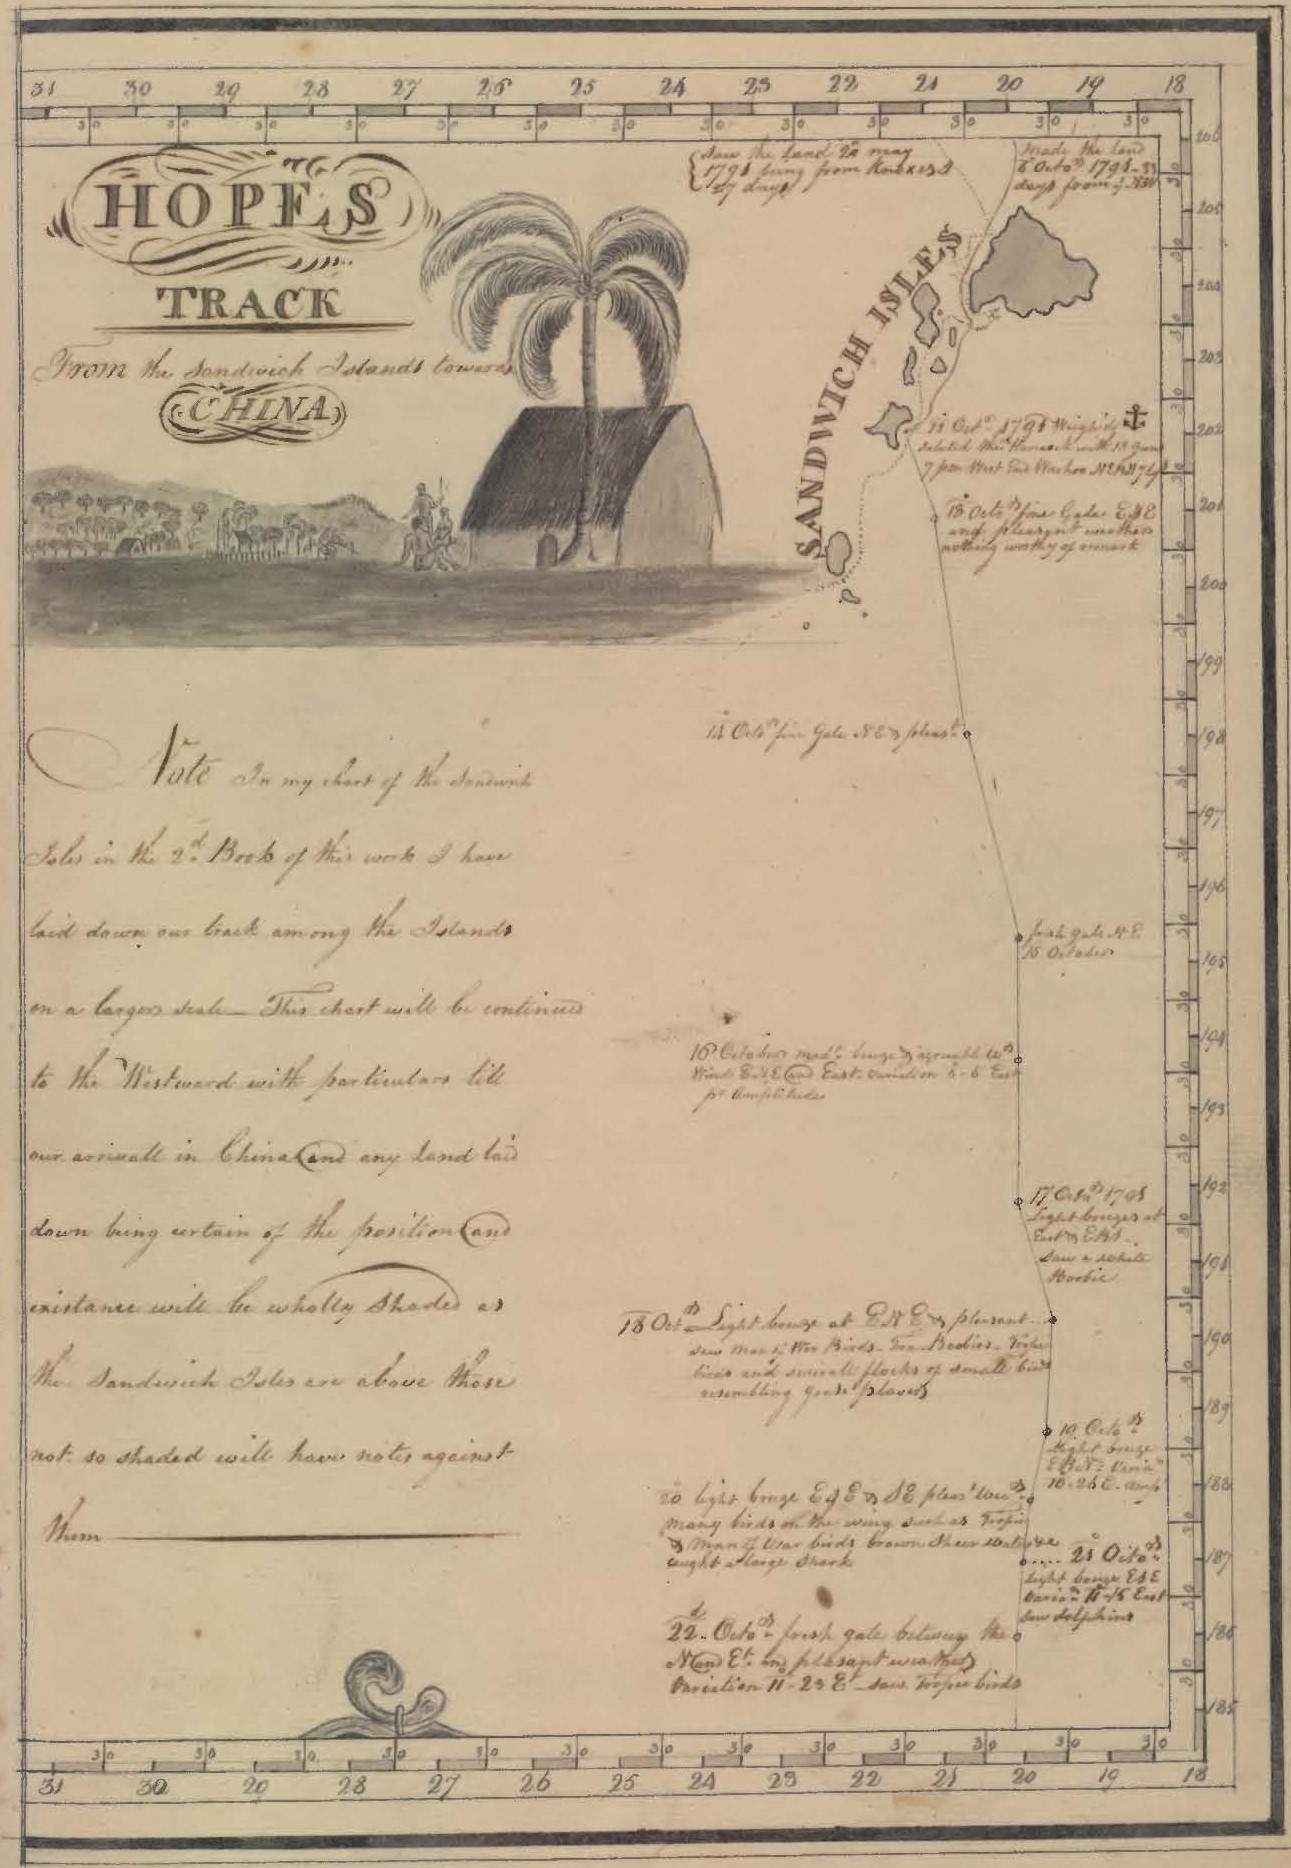 31 30 29 28 27 26 25 24 23 22 21 20 19 18
30 30 30 30 30 30 30 30 30 30 30 30 30
HOPE'S
TRACK
From the Sandwich Islands towards
CHINA
Saw the land 20 may
1791 being from
27 days
made the land
6 Octo 1791 - 33
days from
SANDWICH ISLES
11 Octr 1791 Weighed
saluted the with 13 Guns
7 pm West End Wachoo
13 Octor fine Gale ENE
and pleasant weather
nothing worthy of remark
14 Octor fine Gale NE & pleast
fresh gale N.E.
15 October
16 October modt breeze & agreeable
Wind ENE and East variation East
pr Amplitude
17 Octor 1791
Light breezes at
East &
Saw a white
Boobie
18 Octr Light breeze at ENE & pleasant
saw Man of War Birds - Boobies - Tropic
birds and severall flocks of small birds
resembling grass plovers
19 Octor
Light breeze
20 light breeze & SE pleast
many birds on the wing such as Tropic
& Man of War birds brown Sheer water &c
caught a large Shark
21 Octor
Light breeze
Varian 11-15 East
Saw dolphins
22d Octor fresh gale between the
N and Et and pleasant weather
Variation 11-23 Et - saw Tropic birds
Note In my chart of the Sandwich
Isles in the 2d Book of this work I have
laid down our track among the Islands
on a larger scale — This chart will be continued
to the Westward with particulars till
our arrivall in China and any land laid
down being certain of the position and
existance will be wholly shaded as
the Sandwich Isles are above those
not so shaded will have notes against
them
206
205
204
203
202
201
200
199
198
197
196
195
194
193
192
191
190
189
188
187
186
185
30 30 30 30 30 30 30 30 30 30 30 30 30
31 30 29 28 27 26 25 24 23 22 21 20 19 18